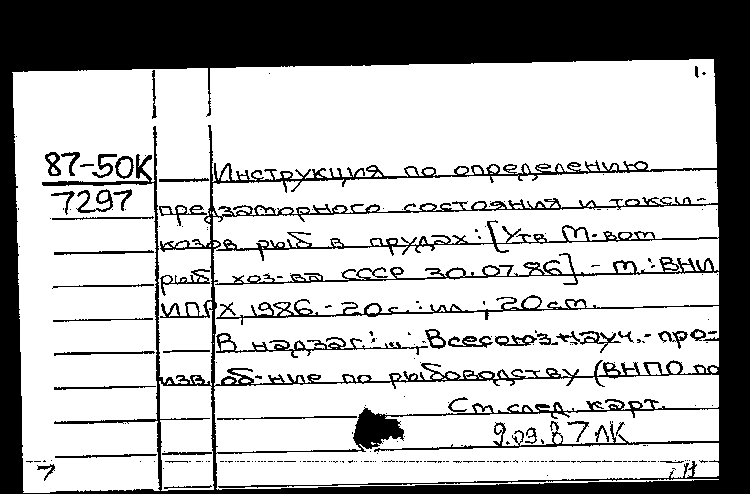 1.
87-50К
7297
Инструкция по определению
предзаморного состояния и токси-
козов рыб в прудах: [Утв М-вом
рыб. хоз-ва СССР 30.07.86]. - М.: ВНИ
ИПРХ, 1986. - 20 с. : ил ; 20 см.
В надзаг.: ... ; Всесоюз. науч. - про-
изв. об-ние по рыбоводству (ВНПО по
См. след. карт.
9.09.87 ЛК
7